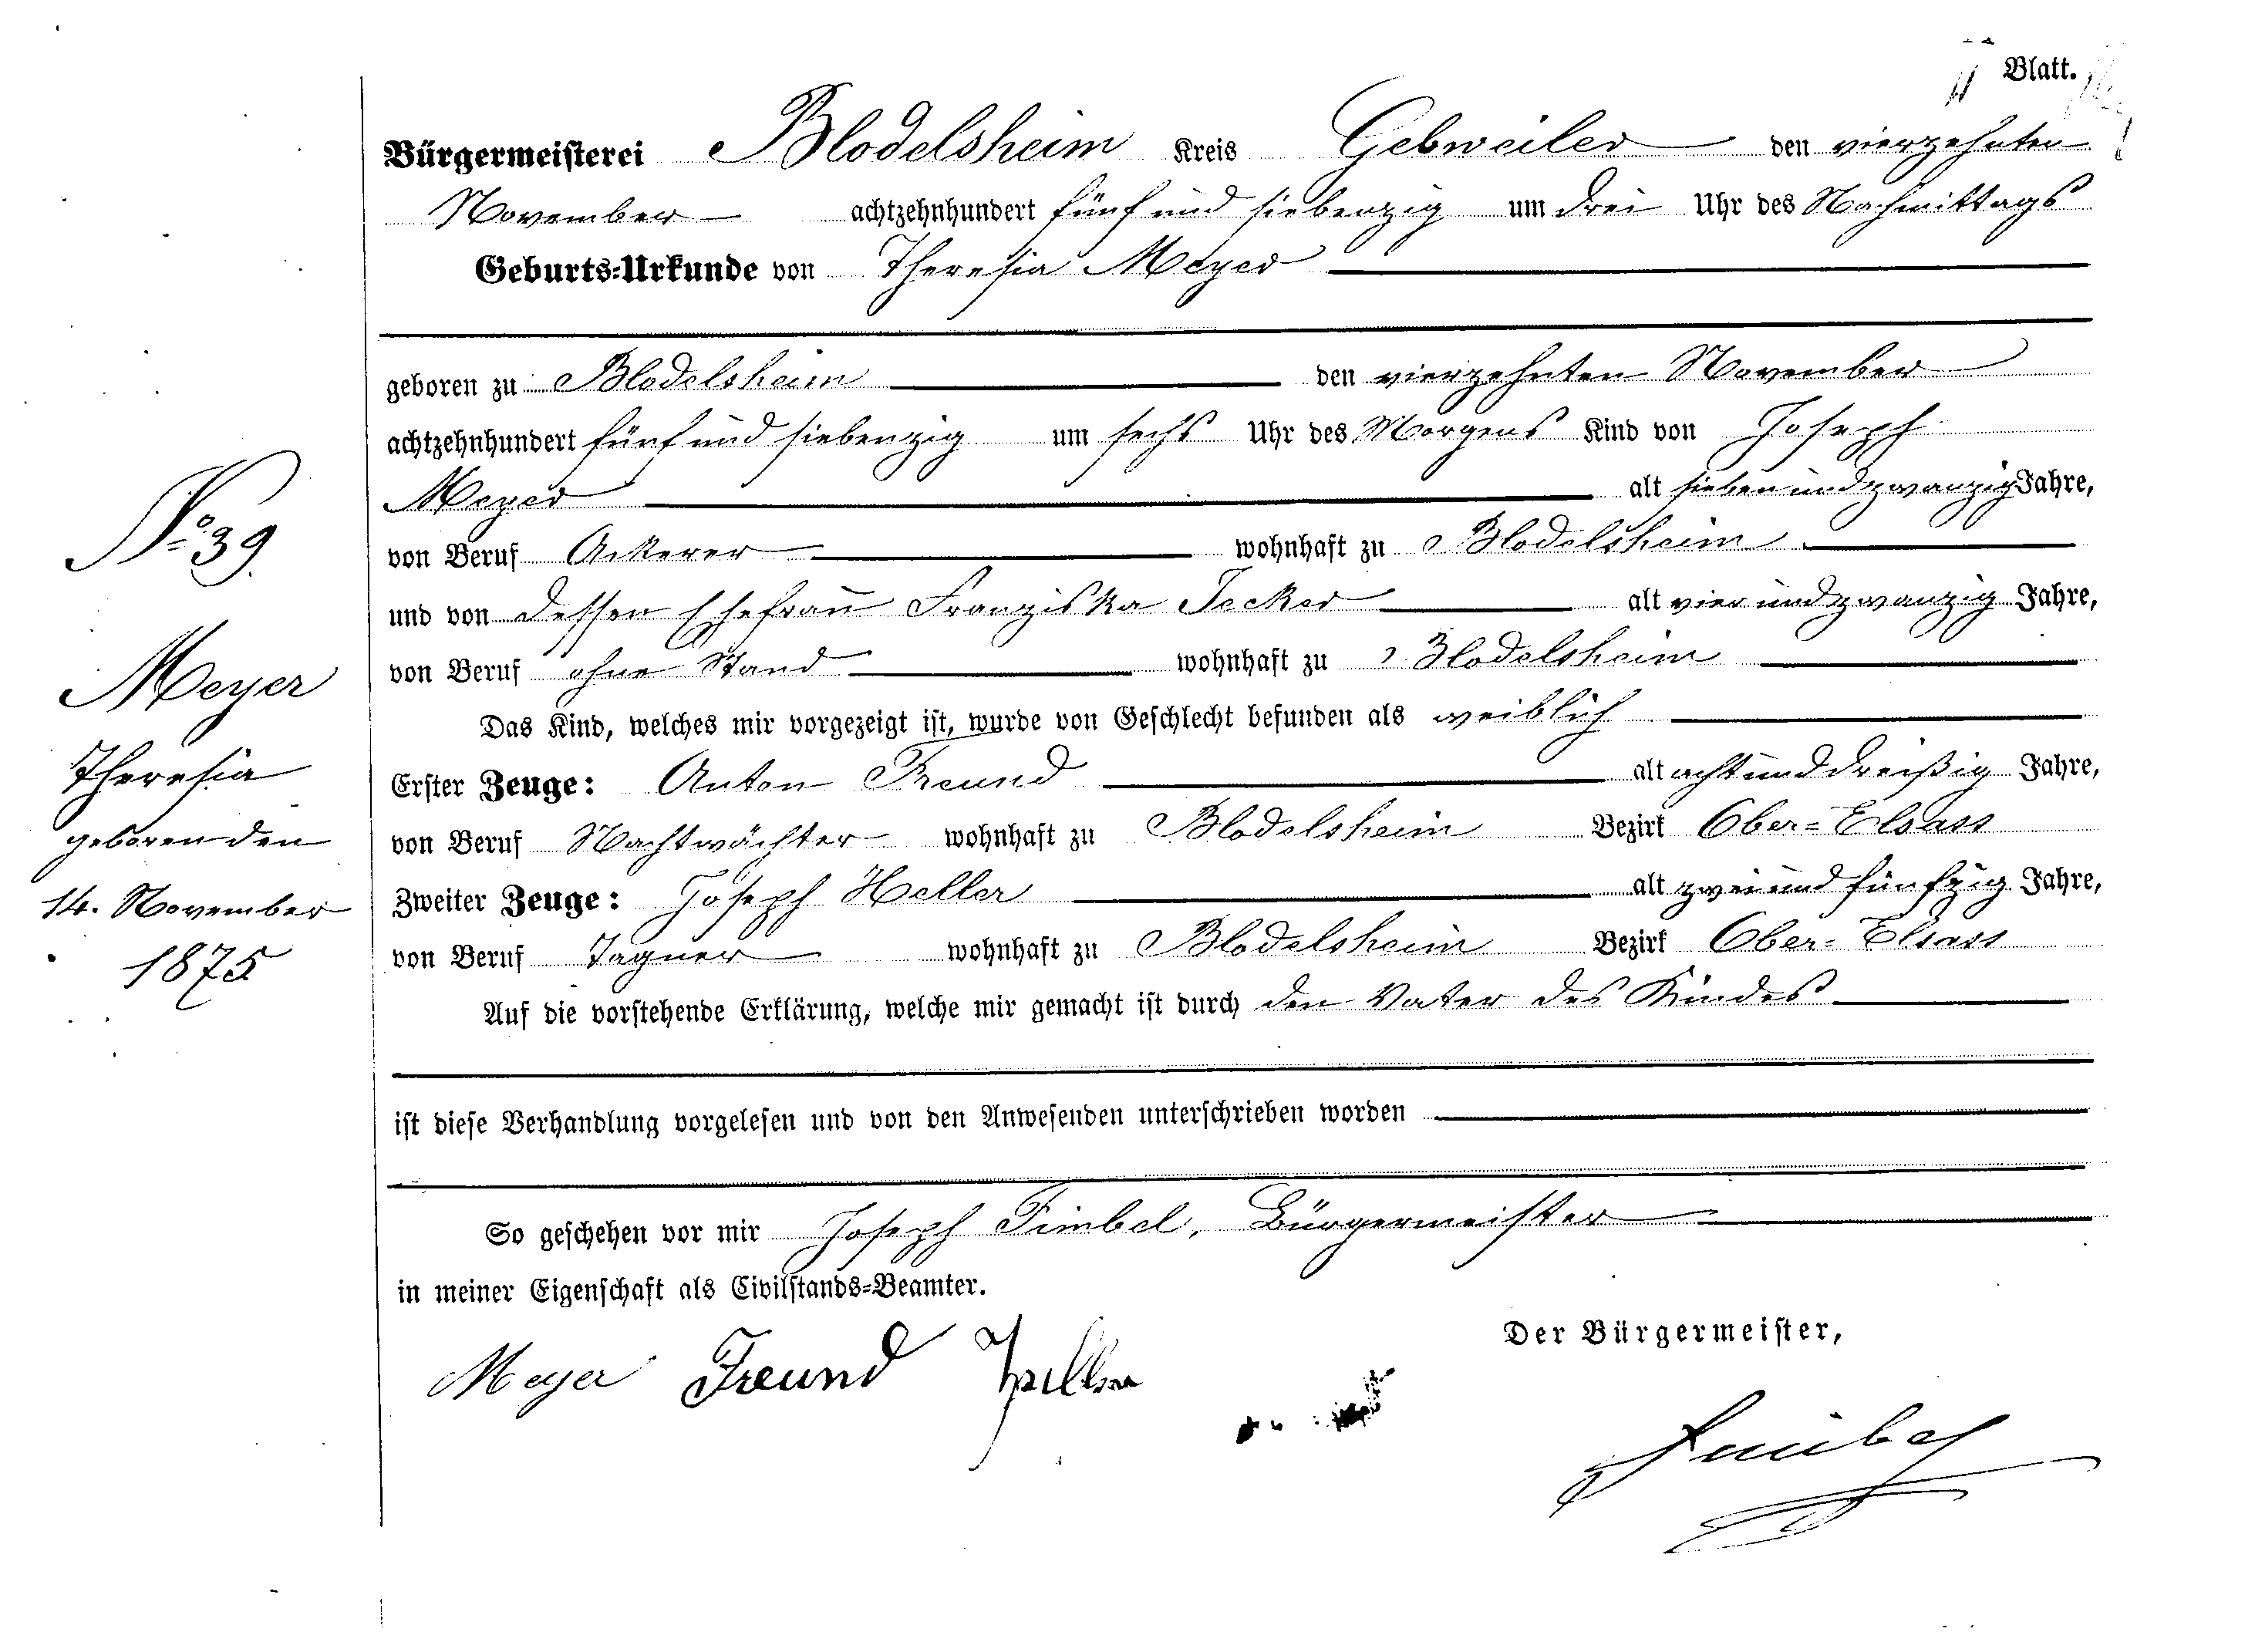 Blatt.
Bürgermeisterei Blodelsheim Kreis Gebweiler den vierzehnten
November achtzehnhundert fünf und siebenzig um drei Uhr des Nachmittags
Geburts-Urkunde von Theresia Meyer
geboren zu Blodelsheim den vierzehnten November
achtzehnhundert fünf und siebenzig um sechs Uhr des Morgens Kind von Joseph
Meyer alt sieben und zwanzig Jahre,
von Beruf Ackerer wohnhaft zu Blodelsheim
und von dessen Ehefrau Franziska Jecker alt vier und zwanzig Jahre,
von Beruf ohne Stand wohnhaft zu Blodelsheim
Das Kind, welches mir vorgezeigt ist, wurde von Geschlecht befunden als weiblich
Erster Zeuge: Anton Freund alt acht und dreißig Jahre,
von Beruf Nachtwächter wohnhaft zu Blodelsheim Bezirk Ober-Elsass
Zweiter Zeuge: Joseph Heller alt zwei und fünfzig Jahre,
von Beruf Tagner wohnhaft zu Blodelsheim Bezirk Ober-Elsass
Auf die vorstehende Erklärung, welche mir gemacht ist durch den Vater des Kindes
ist diese Verhandlung vorgelesen und von den Anwesenden unterschrieben worden
So geschehen vor mir Joseph Fimbel, Bürgermeister
in meiner Eigenschaft als Civilstands-Beamter.
Der Bürgermeister,
Meyer Freund Heller
Fimbel
No. 39.
Meyer
Theresia
geboren den
14. November
1875